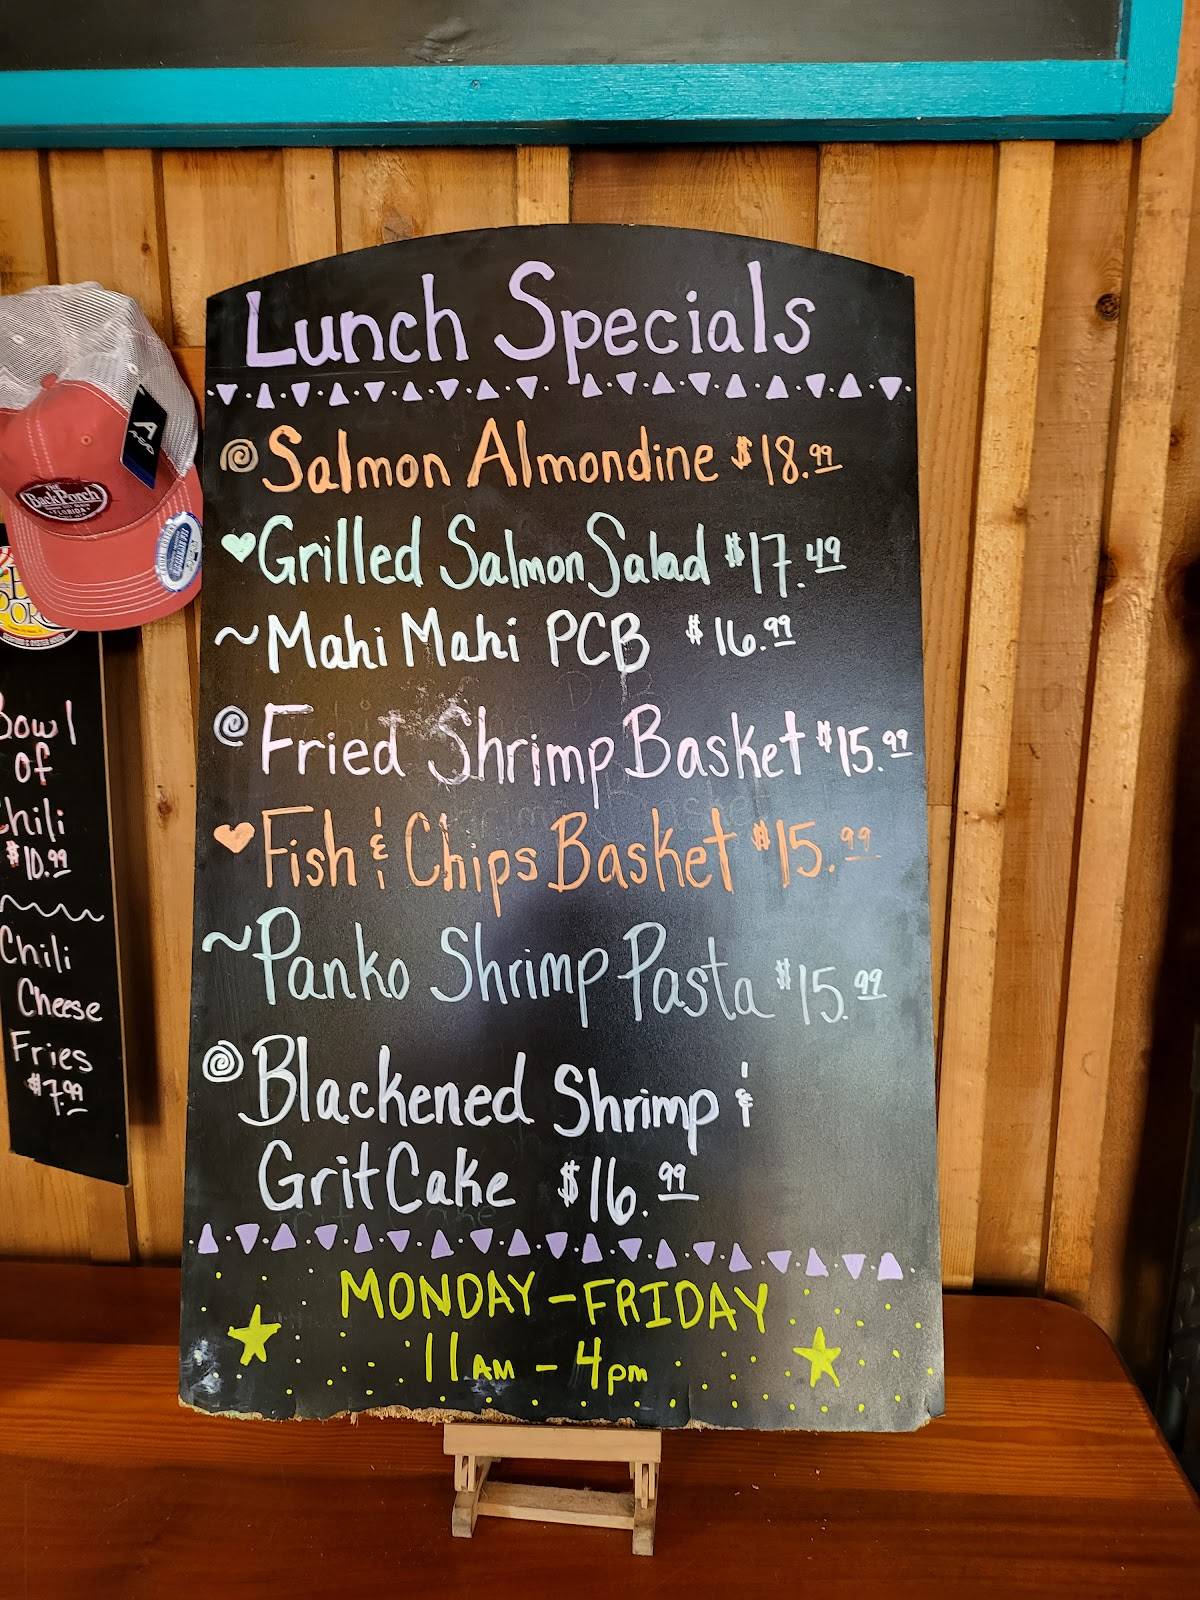 Lunch Specials
Salmon Almondine $18.99
Grilled Salmon Salad $17.49
~Mahi Mahi PCB $16.99
Fried Shrimp Basket $15.99
Fish & Chips Basket $15.99
~Panko Shrimp Pasta $15.99
Blackened Shrimp &
Grit Cake $16.99
MONDAY - FRIDAY
11AM - 4pm
Bowl
of
Chili
$10.99
Chili
Cheese
Fries
$7.99
THE
Back Porch
FLORIDA